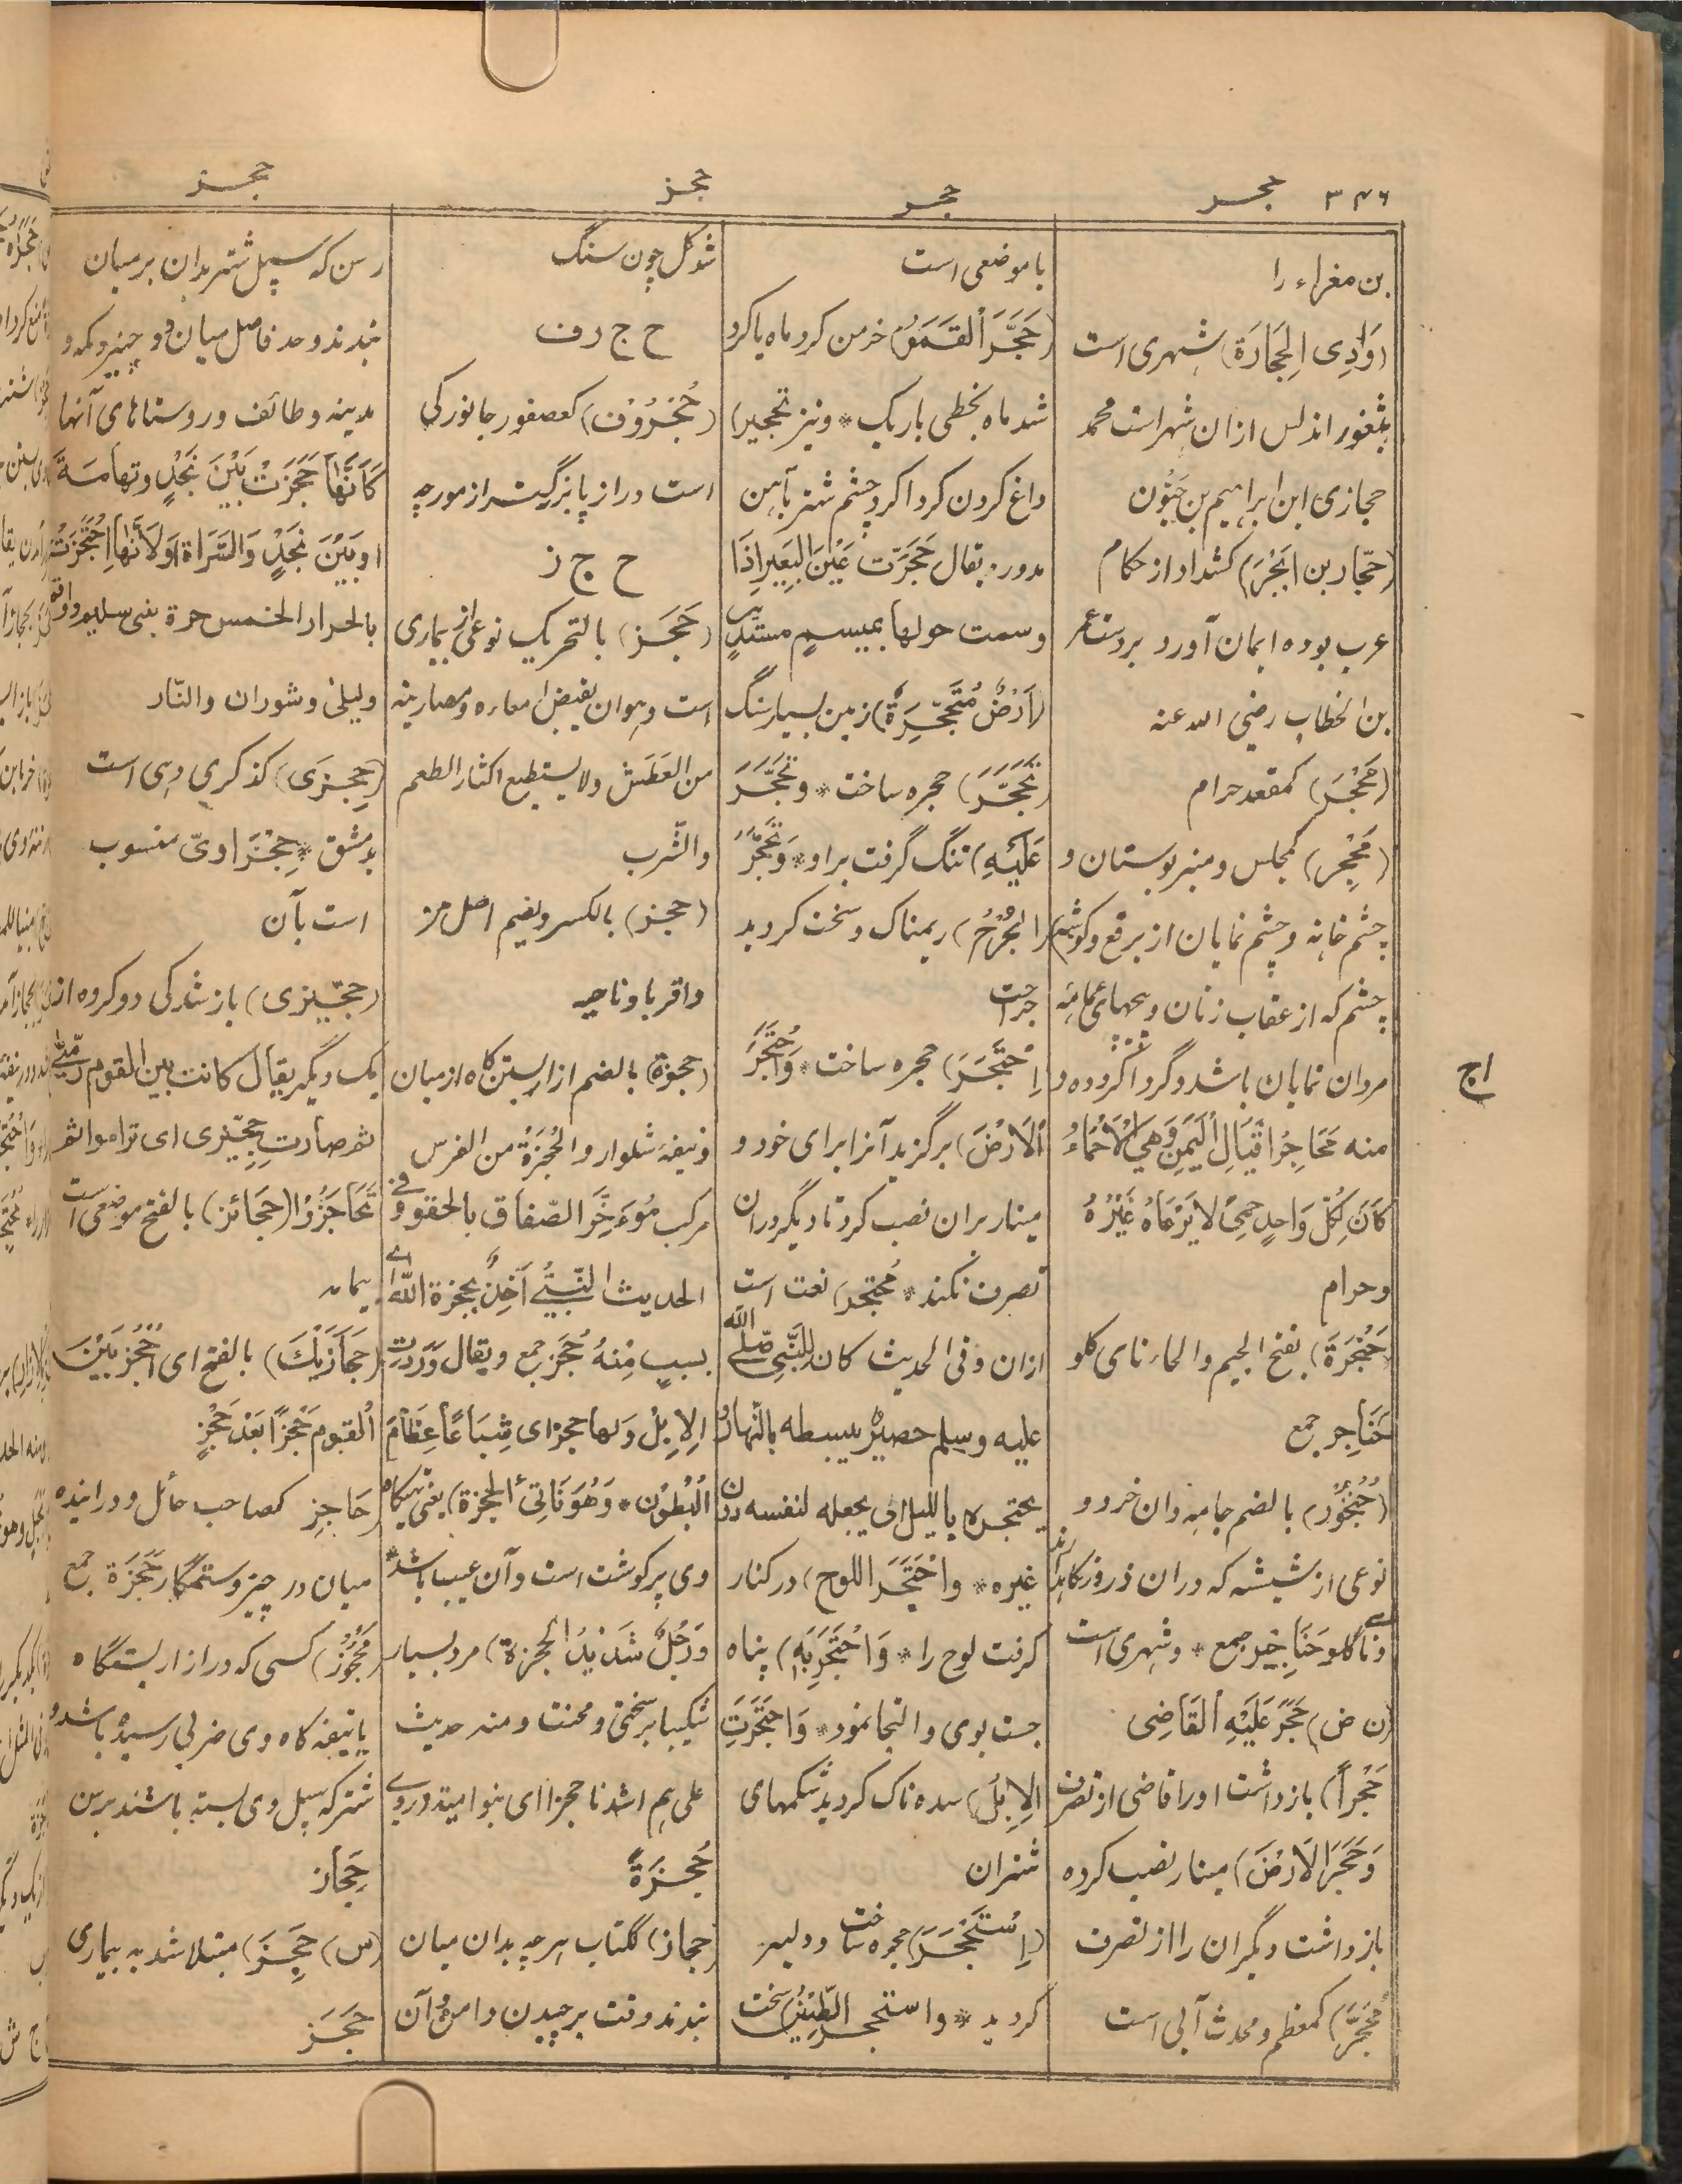 ۳۴۶ حجر حجر حجز حجز
بن مغراء را
(وَادِی الحِجَارَة) شهری است
بثغور اندلس ازان شهر است محمد
حجازی ابن ابراهیم بن حَیُّون
(حَجّار بن اَبْجَرَ) کشداد از حکام
عرب بوده ایمان آورد بر دست عمر
بن الخطاب رضی الله عنه
(مَحْجَر) کمقعد حرام
(مَحْجِر) کمجلس و منبر بوستان و
چشم خانه و چشم نمایان از برقع و گوشه
چشم که از نقاب زنان و
مردان نمایان باشد و گرداگرد ده و
منه مَحَاجِرُ اَقْیَالِ الْیَمَنِ وَهِیَ الْاَحْمَاءُ
کَانَ لِکُلِّ وَاحِدٍ حِمیً لَا یَرْعَاهُ غَیْرُهُ
و حرام
(حَنْجَرَة) بفتح الجیم والحاء نای گلو
حَنَاجِر جمع
(حُنْجُوْر) بالضم جامه دان خرد و
نوعی از شیشه که دران ذرور نگاهدارند
و نای گلو حَنَاجِیْر جمع * و شهری است
(ن ض) حَجَرَ عَلَیْهِ الْقَاضِی
حَجْراً) بازداشت او را قاضی از تصرف
وَحَجَرَ الْاَرْضَ) مینار نصب کرده
بازداشت دیگران را از تصرف
مُحَجَّر) کمعظم و محدث آبی است
یا موضعی است
(حَجَّرَ الْقَمَرُ) خرمن کرد ماه یا گرد
شد ماه بخطی باریک * و نیز تحجیر)
داغ کردن گرداگرد چشم شتر بآهن
مدور یقال حَجَّرْتَ عَیْنَ الْبَعِیْرِ اِذَا
وسمت حولها بمیسمٍ مستدیرٍ
(اَرْضٌ مُتَحَجِّرَةٌ) زمین بسیار سنگ
(تَحَجَّرَ) حجره ساخت * وتَحَجَّرَ
عَلَیْهِ) تنگ گرفت بر او * وَتَحَجَّرَ
الْجُرْحُ) ریمناک و سخت گردید
جراحت
اِحْتَجَرَ) حجره ساخت * وَاحْتَجَرَ
الْاَرْضَ) برگزید آنرا برای خود و
مینار بران نصب کرد تا دیگر دران
تصرف نکند * مُحْتَجِر) نعت است
ازان وفی الحدیث کان لِلنَّبِیِّ صلی الله
علیه وسلم حصیرٌ یبسطه بالنهار و
یحتجره باللیل ای یجعله لنفسه دون
غیره * واحْتَجَرَ اللوح) در کنار
گرفت لوح را * وَاحْتَجَرَ بِهِ) پناه
جست بوی و التجا نمود * وَاحْتَجَرَتِ
الْاِبِلُ) سده ناک گردید شکمهای
شتران
(اِسْتَحْجَرَ) حجره ساخت و دلیر
گردید * واستحجر الطِّیْنُ) سخت
شد گل چون سنگ
ح ج ر ف
(حُجْرُوْف) کعصفور جانورکی
است دراز پا بزرگتر از مورچه
ح ج ز
(حَجَز) بالتحریک نوعی از بیماری
است وهو ان یقبض امعاءه ومصارینه
من العَطَش ولا یستطیع اکثار الطعم
والشرب
(حجز) بالکسر و یضم اصل مرد
و اقربا و ناحیه
(حجزة) بالضم ازار بستن گاه از میان
و نیفه شلوار والحُجْزَةُ من الفرس
مرکب مُؤَخَّر الصّفاق بالحقو و فی
الحدیث النَّبِیُّ آخِذٌ بحجزة الله ای
بسببٍ مِنْهُ حُجَز جمع ویقال وَرَدَتِ
الاِبِلُ وَلها حجز ای شِبَاعاً عِظَامَ
الْبُطُوْن * وَهُوَ نَاتِیُ الحجزة) یعنی تهیگاه
وی پر گوشت است و آن عیب باشد *
وَرَجُلٌ شَدِیْدُ الحجزة) مرد بسیار
شکیبا بر سختی و محنت و منه حدیث
علی هم اشدنا حجزا ای بنو امیة
حُجْزَةً
(حِجاز) ککتاب هرچه بدان میان
بندند وقت برچیدن دامن و آن
رسن که سپل شتر بدان بر میان
بندند و حد فاصل میان دو چیز و مکه و
مدینه و طائف و روستاهای آنها
کَاَنَّهَا حَجَزَتْ بَیْنَ نَجْدٍ وتهامة
او بَیْنَ نَجْدٍ وَالسَّرَاة اَوْ لِاَنَّهَا اِحْتَجَزَتْ
بالحرار الخمس حرة بنی سلیم و واقم
ولیلی وشوران والنّار
(حِجْزَی) کذکری دهی است
بدمشق * حِجْزَاوِیّ منسوب
است بآن
(حِجِّیْزی) باز شدگی دو گروه از
یک دیگر یقال کانت بین القوم رِمِّیّا
ثم صارت حِجِّیْزی ای تراموا ثم
تَحَاجَزُوْا (حَجَائز) بالفتح موضعی است
بیمامه
(حَجَازَیْکَ) بالفتح ای اُحْجُزْ بَیْنَ
الْقَوم حَجْزًا بَعْدَ حَجْزٍ
(حَاجِز) کصاحب حائل و در اینده
میان دو چیز و ستمگار حَجَزَة جمع
(مَحْجُوْز) کسی که در ازار بستنگاه
یا نیفه گاه وی ضربی رسیده باشد و
شتر که سپل وی بسته باشند برین
حِجَاز
(س) حَجِزَ) مبتلا شد به بیماری
حَجَز
اج